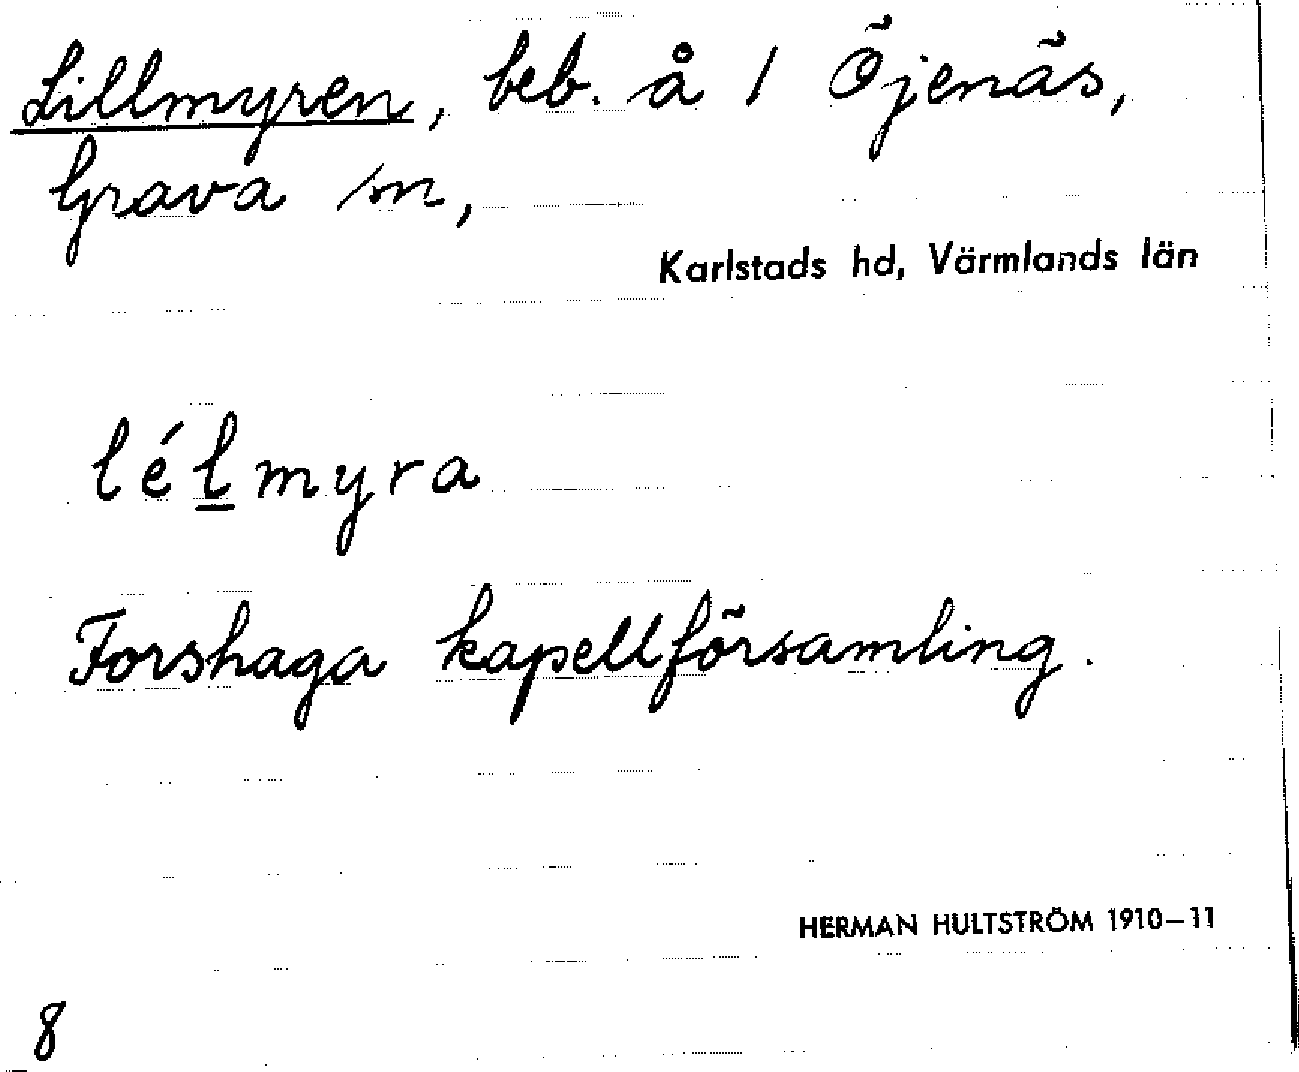 Lillmyren, beb. å 1 Öjenäs,
Grava sn,
Karlstads hd, Värmlands län
lélmyra
Forshaga kapellförsamling.
HERMAN HULTSTRÖM 1910–11
8